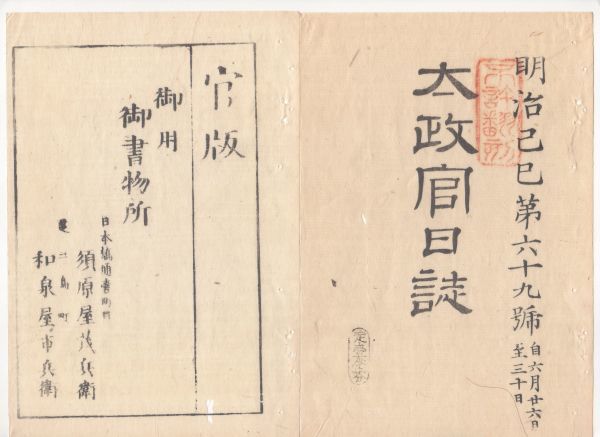 明治己巳第六十九號 自六月廿六日 至三十日
太政官日誌
官版
御用
御書物所
日本橋通壹町目
須原屋茂兵衛
芝三島町
和泉屋市兵衛